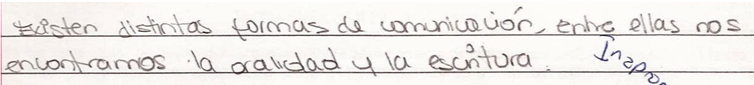 Existen distintas formas de comunicación, entre ellas nos
encontramos la oralidad y la escritura.